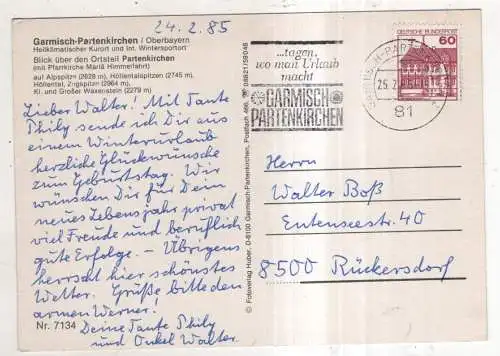 24.2.85
Garmisch-Partenkirchen / Oberbayern
Heilklimatischer Kurort und int. Wintersportort
Blick über den Ortsteil Partenkirchen
mit Pfarrkirche Mariä Himmelfahrt)
auf Alpspitz (2628 m), Höllentalspitzen (2745 m),
Höllental, Zugspitze (2964 m),
Kl. und Großer Waxenstein (2279 m)
Lieber Walter! Mit Tante
Phily sende ich Dir aus
einem Winterurlaub
herzliche Glückwünsche
zum Geburtstag. Wir
wünschen Dir für Dein
neues Lebensjahr privat
viel Freude und beruflich
gute Erfolge. – Übrigens
herrscht hier schönstes
Wetter. Grüße bitte den
armen Werner!
Deine Tante Phily
und Onkel Walter.
Nr. 7134
© Fotoverlag Huber, D-8100 Garmisch-Partenkirchen, Postfach 466,
...tagen,
wo man Urlaub
macht
GARMISCH
PARTENKIRCHEN
81
DEUTSCHE BUNDESPOST
60
Herrn
Walter Boß
Entenseestr. 40
8500 Rückersdorf